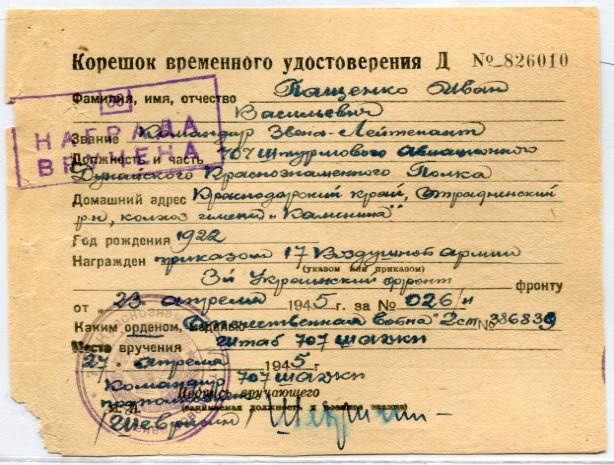 Корешок временного удостоверения Д № 826010
Фамилия, имя, отчество Пащенко Иван
Васильевич
58
НАГРАДА
ВРУЧЕНА
Звание Командир Звена - Лейтенант
Должность и часть 707 Штурмового Авиационного
Дунайского Краснознаменного Полка
Домашний адрес Краснодарский край, Отрадненский
р-н, колхоз имени "Калинина"
Год рождения 1922
Награжден приказом 17 Воздушной армии
(указом или приказом)
3й Украинский фронт фронту
от " 23 апреля 1945 г. за № 026/н
Каким орденом, медалью Отечественная война 2 ст № 386839
Место вручения Штаб 707 ШАДКП
27 апреля 1945 г.
Командир 707 ШАДКП
Подпись вручающего
подполковник
М. П. (занимаемая должность и воинское звание)
/Шевригин/